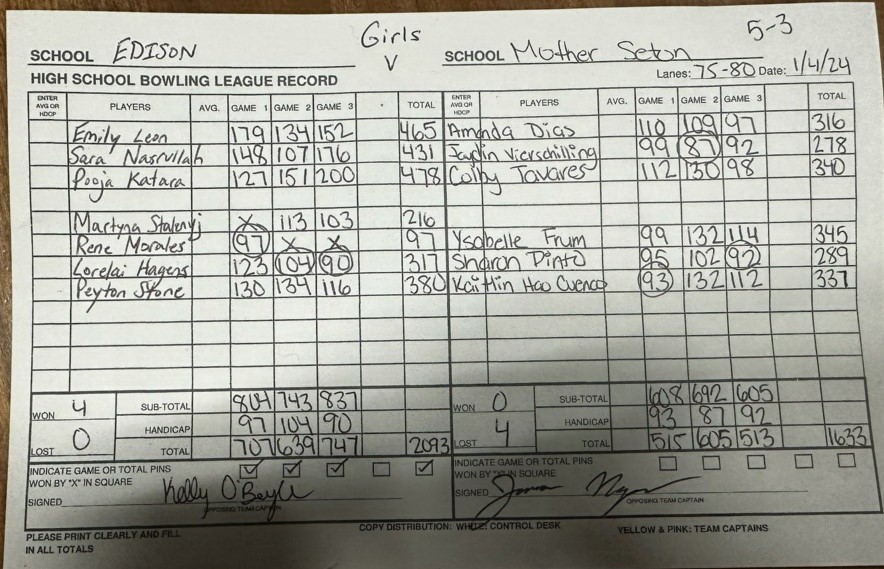 Girls 5-3
SCHOOL EDISON V SCHOOL Mother Seton
HIGH SCHOOL BOWLING LEAGUE RECORD Lanes: 75-80 Date: 1/4/24
ENTER AVG OR HDCP PLAYERS AVG. GAME 1 GAME 2 GAME 3 TOTAL ENTER AVG OR HDCP PLAYERS AVG. GAME 1 GAME 2 GAME 3 TOTAL
Emily Leon 179 134 152 465 Amanda Dias 110 109 97 316
Sara Nasrullah 148 107 176 431 Jaydin Vierschilling 99 87 92 278
Pooja Katara 127 151 200 478 Colby Tavares 112 130 98 340
Martyna X 113 103 216
Rene Morales 97 X X 97 Ysabelle Frum 99 132 114 345
Lorelai Hagens 123 104 90 317 Sharon Pinto 95 102 92 289
Peyton Stone 130 134 116 380 Kaitlin Hao Cuenco 93 132 112 337
WON 4 SUB-TOTAL 804 743 837 WON 0 608 692 605 SUB-TOTAL
HANDICAP 97 104 90 HANDICAP 93 87 92
LOST 0 TOTAL 707 639 747 2093 LOST 4 TOTAL 515 605 513 1633
INDICATE GAME OR TOTAL PINS INDICATE GAME OR TOTAL PINS
WON BY "X" IN SQUARE WON BY "X" IN SQUARE
SIGNED Kelly O'Boyle SIGNED
OPPOSING TEAM CAPTAIN OPPOSING TEAM CAPTAIN
PLEASE PRINT CLEARLY AND FILL COPY DISTRIBUTION: WHITE: CONTROL DESK YELLOW & PINK: TEAM CAPTAINS
IN ALL TOTALS